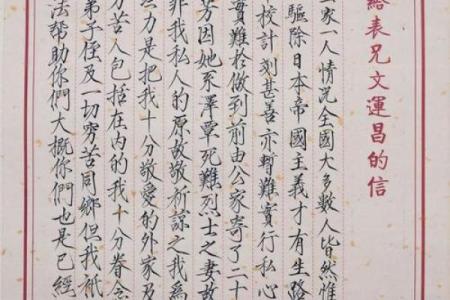 給表兄文運昌的信
家一人情況全國大多數人皆然惟
驅除日本帝國主義才有生路
校計刻甚善亦暫難實行私心
實難於做到前由公家寄了二十
芳因她系澤覃死難烈士之妻故
非我私人的原故敬祈諒之我為
力是把我十分敬愛的外家及
分苦人包括在内的我十分眷念
弟子侄及一切窮苦同鄉但我祇
法幫助你們大概你們也是已經